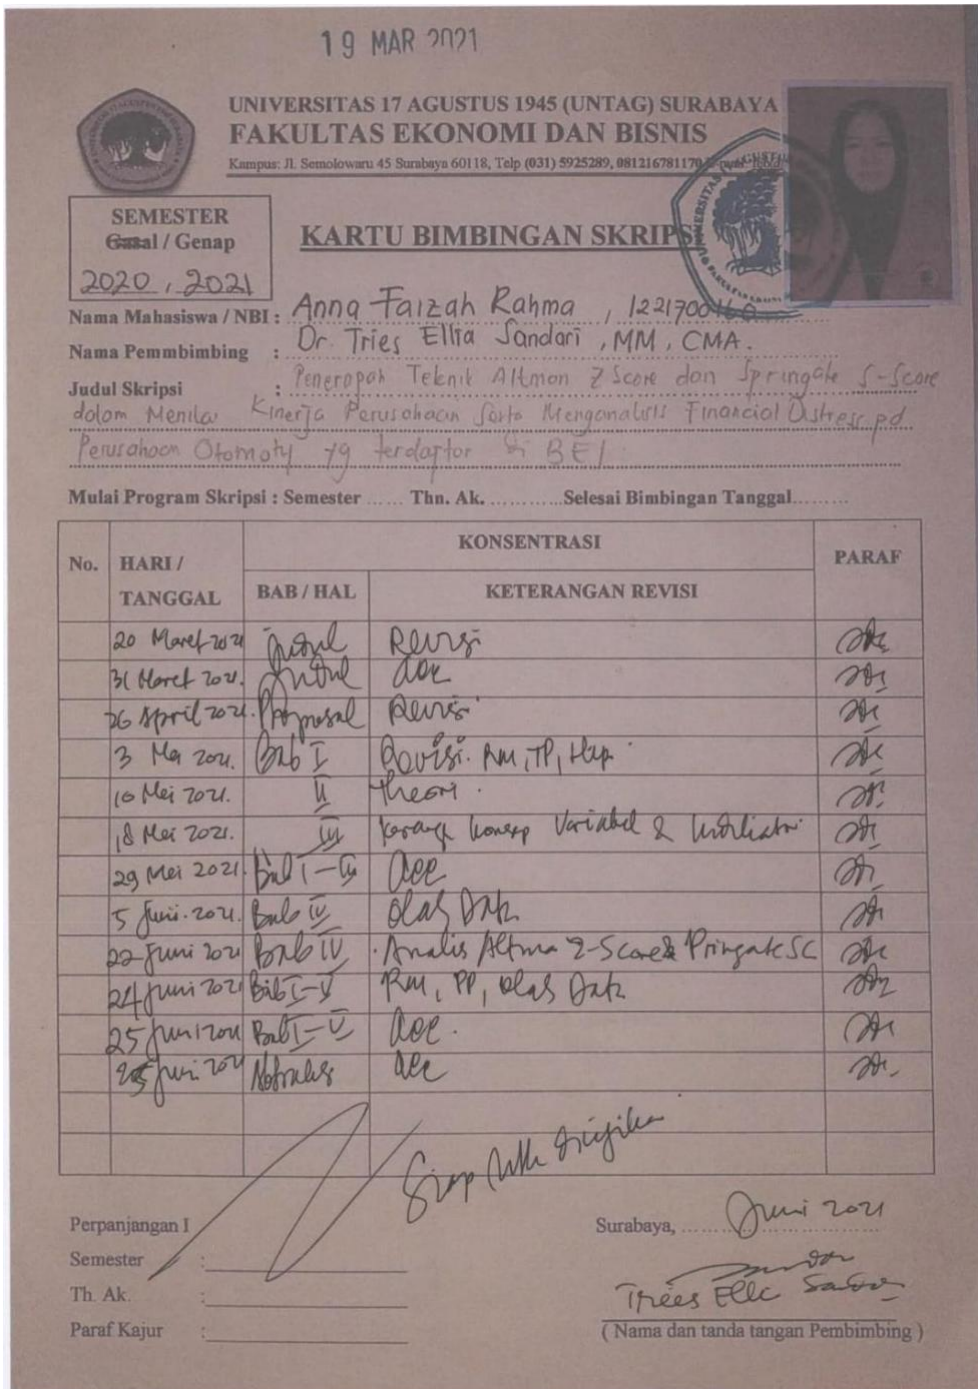 19 MAR 2021
UNIVERSITAS 17 AGUSTUS 1945 (UNTAG) SURABAYA
FAKULTAS EKONOMI DAN BISNIS
Kampus: Jl. Semolowaru 45 Surabaya 60118, Telp (031) 5925289, 081216781170
SEMESTER
Gasal / Genap
2020, 2021
KARTU BIMBINGAN SKRIPSI
Nama Mahasiswa / NBI : Anna Faizah Rahma , 1221700160
Nama Pemmbimbing : Dr. Tries Ellia Sandari, MM, CMA.
Judul Skripsi : Penerapan Teknik Altman Z Score dan Springate S-Score
dalam Menilai Kinerja Perusahaan Serta Menganalisis Financial Distress pd
Perusahaan Otomotif yg terdaftar di BEI
Mulai Program Skripsi : Semester ...... Thn. Ak. ........... Selesai Bimbingan Tanggal.........
No. HARI / TANGGAL KONSENTRASI PARAF
BAB / HAL KETERANGAN REVISI
20 Maret 2021 Judul Revisi
31 Maret 2021. Judul acc
26 April 2021. Proposal Revisi
3 Mei 2021. Bab I Revisi. RM, TP,
10 Mei 2021. II Theori.
18 Mei 2021. III Konsep Variabel &
29 Mei 2021. Bab I-III acc
5 Juni 2021. Bab IV Olah Data
22 Juni 2021 Bab IV Analis Altma Z-Score & Pringate SC
24 Juni 2021 Bab I-V RM, PP, Olah Data
25 Juni 2021 Bab I-V acc.
25 Juni 2021 acc
Siap utk diujikan
Perpanjangan I
Semester :
Th. Ak. :
Paraf Kajur :
Surabaya, Juni 2021
Tries Elli
( Nama dan tanda tangan Pembimbing )